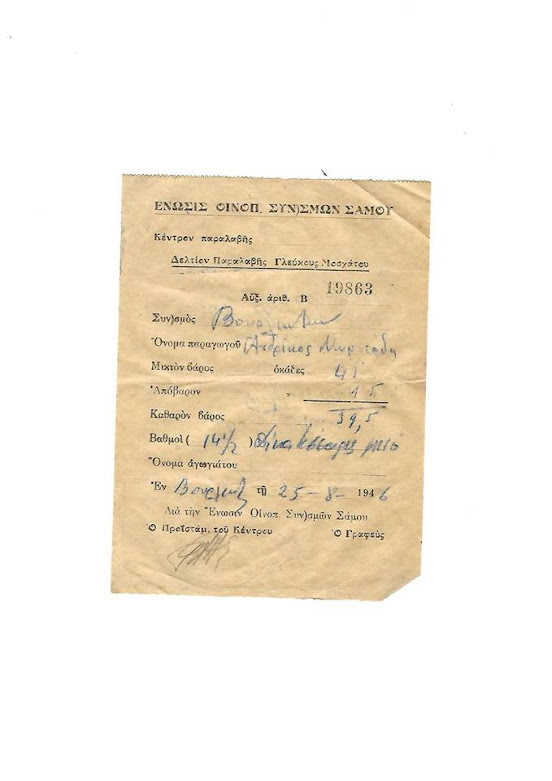 ΕΝΩΣΙΣ ΟΙΝΟΠ. ΣΥΝ)ΣΜΩΝ ΣΑΜΟΥ
Κέντρον παραλαβῆς
Δελτίον Παραλαβῆς Γλεύκους Μοσχάτου
19863
Αὔξ. ἀριθ. Β
Συν)σμός
Ὄνομα παραγωγοῦ
Μικτὸν βάρος ὀκάδες 41
Ἀπόβαρον 1,5
Καθαρὸν βάρος 39,5
Βαθμοὶ ( 14 1/2 ) Δέκα τέσσαρες
Ὄνομα ἀγωγιάτου
Ἐν τῇ 25-8-1946
Διὰ τὴν Ἕνωσιν Οἰνοπ. Συν)σμῶν Σάμου
Ὁ Προϊστάμ. τοῦ Κέντρου Ὁ Γραφεὺς